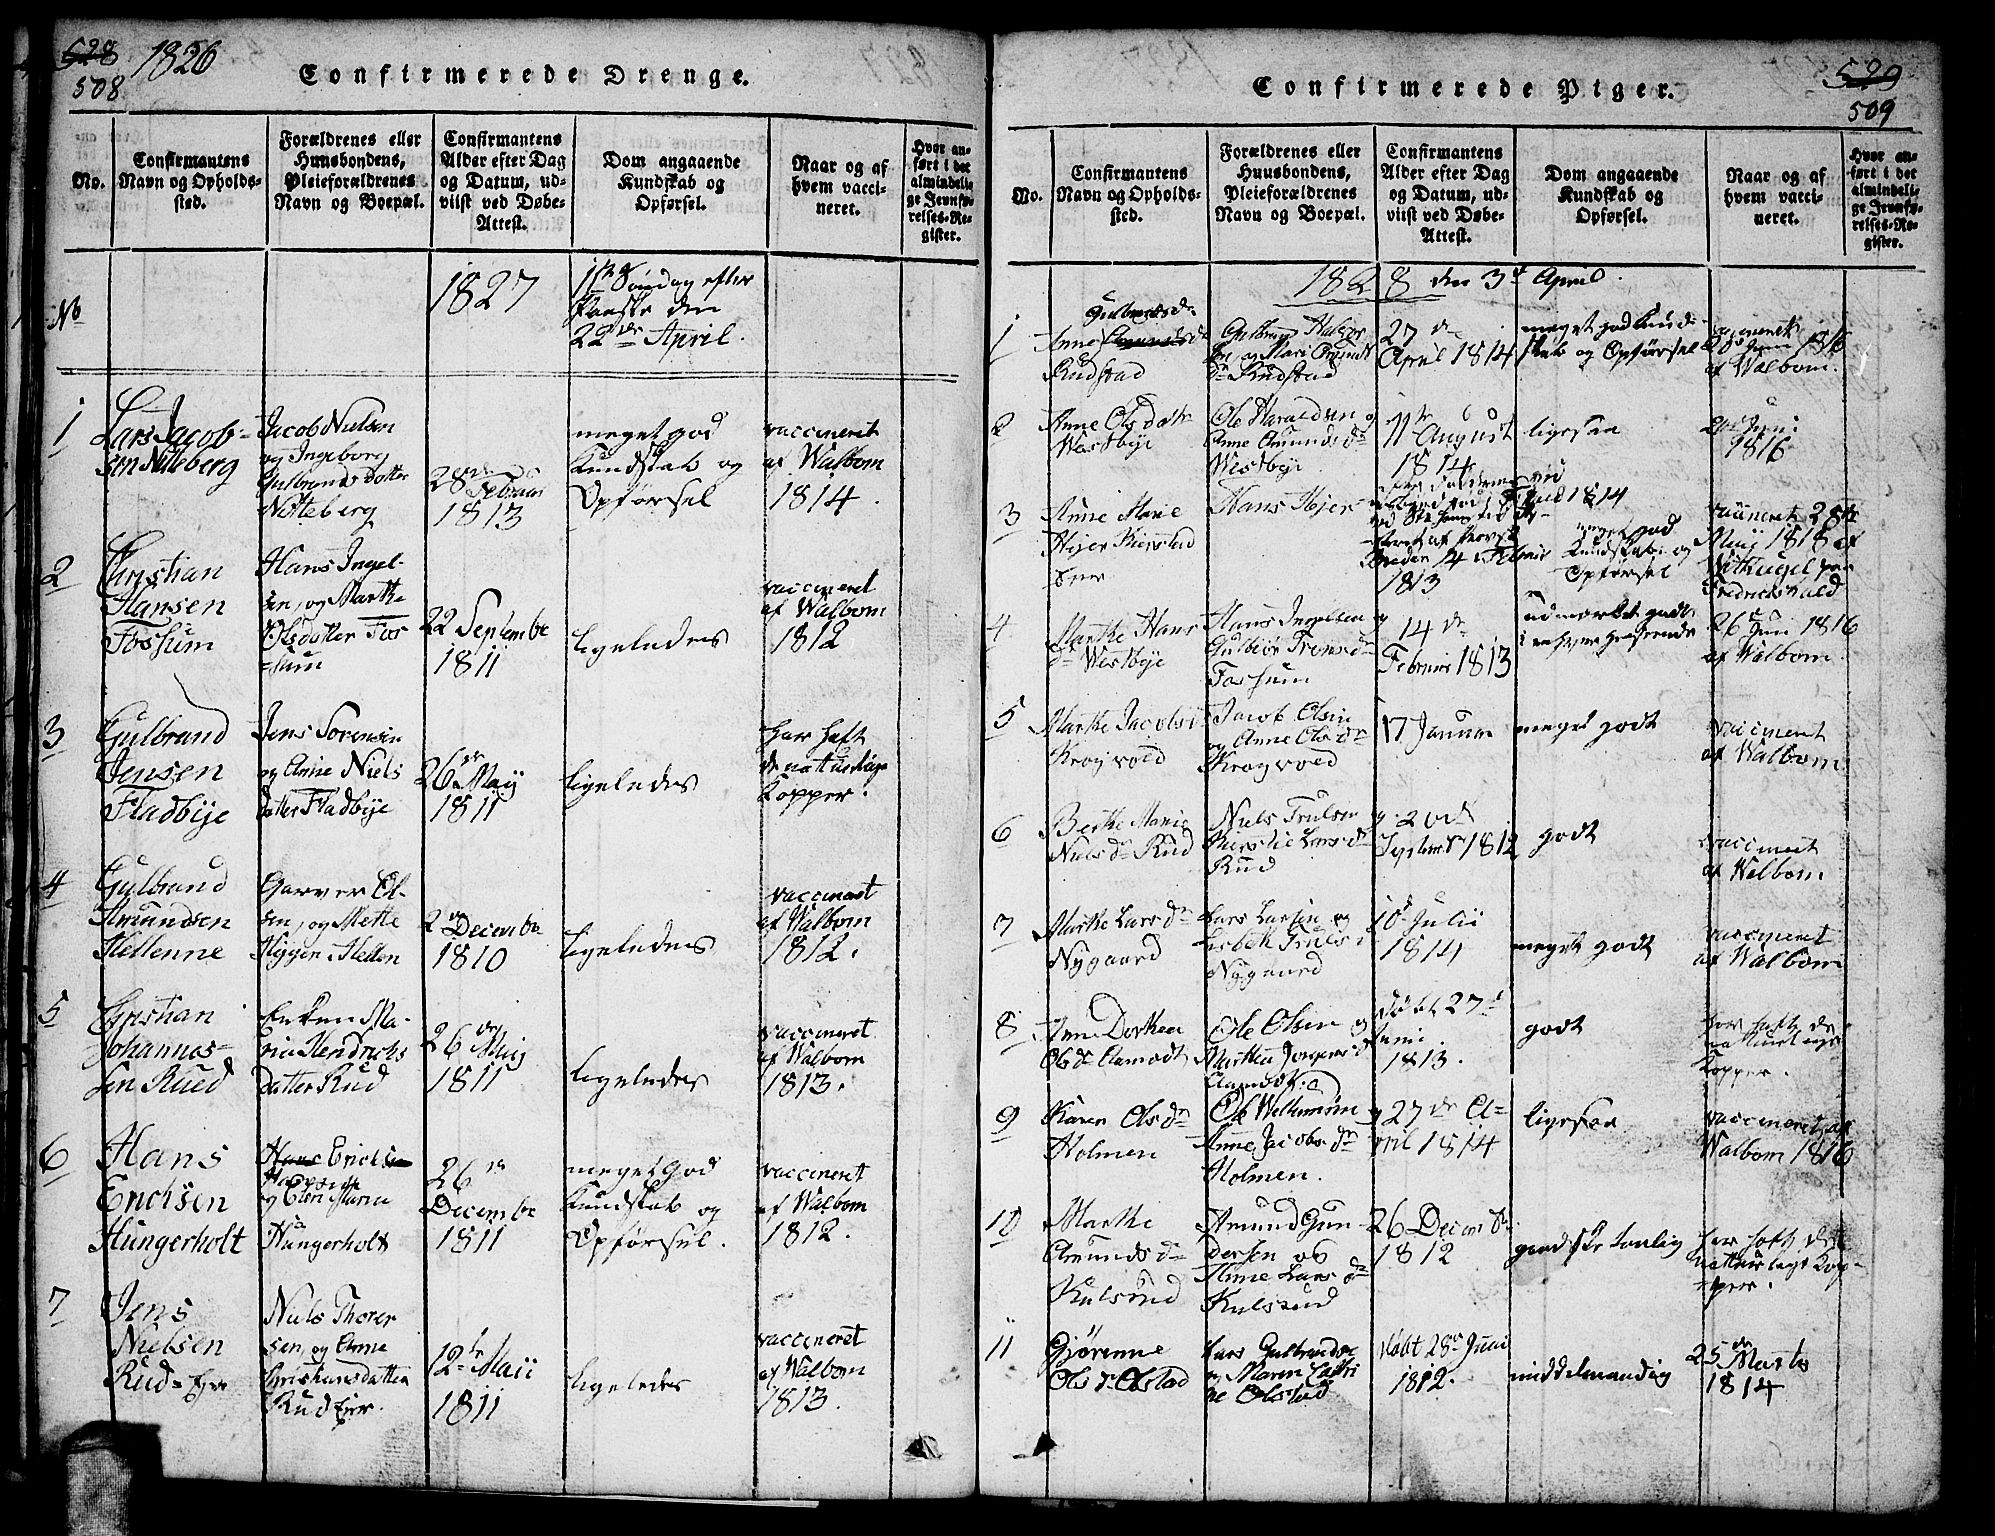 528 1826
508
Confirmerede Drenge.
No.
Confirmantens
Navn og Opholds-
sted.
Forældrenes eller
Huusbondens,
Pleieforældrenes
Navn og Boepæl.
Confirmantens
Alder efter Dag
og Datum, ud-
viist ved Døbe-
Attest.
Dom angaaende
Kundskab og
Opførsel.
Naar og af
hvem vacci-
neret.
Hvor an-
ført i det
almindeli-
ge Jevnfø-
relses-Re-
gister.
No
1827
1ste Søndag efter
Paaske den
22de April.
1
Lars Jacob-
sen Nitteberg
Jacob Nielsen
og Ingeborg
Gulbrandsdatter
Nitteberg
28de Februar
1813
meget god
Kundskab og
Opførsel
vaccineret
af Walbom
1814.
2
Christian
Hansen
Fossum
Hans Ingel-
sen, og Marthe
Olsdatter Fos
=sum
22 Septembr
1811
ligeledes
vaccineret
af Walbom
1812
3
Gulbrand
Jensen
Fladbye
Jens Sorensen
og Anne Niels
datter Fladbye
26de Maij
1811
ligeledes
har haft
de naturlige
Kopper.
4
Gulbrand
Amundsen
Hellenne
Garver Ol-
sen, og Mette
Hellen
2den Decembr
1810
ligeledes
vaccineret
af Walbom
1812.
5
Christian
Johannes-
sen Rued
Enken Ma-
ria Hendrichs
datter Rud
26de Maij
1811
ligeledes
vaccineret
af Walbom
1813.
6
Hans
Erichsen
Hungerholt
Hans Erichsen
og Elen Maria
Hungerholt
26de
Decembr
1811
meget God
Kundskab og
Opførsel.
vaccineret
af Walbom
1812.
7
Jens
Nielsen
Rud-Eier
Niels Thorer
sen, og Anne
Christiansdatter
Rud Eier.
12te Maii
1811
ligeledes
vaccineret
af Walbom
1813.
Confirmerede Piger.
529
509
No.
Confirmantens
Navn og Opholds-
sted.
Forældrenes eller
Huusbondens,
Pleieforældrenes
Navn og Boepæl.
Confirmantens
Alder efter Dag
og Datum, ud-
viist ved Døbe-
Attest.
Dom angaaende
Kundskab og
Opførsel.
Naar og af
hvem vacci-
neret.
Hvor an-
ført i det
almindeli-
ge Jevnfø-
relses-Re-
gister.
1828 den 3d April.
1
Gulbrandsdr
Anne Amundsdr
Rudstad
Gulbrand Halvor
sen og Mari Amunds
dr Rudstad
27de
April 1814
meget god Kund-
skab og Opførsel
vaccineret
1816
af Walbom.
2
Anne Olsdatr
Westbye
Ole Haraldsen og
Anne Amundsdr
Westbye
11te August
1814
ligesaa
Juni
1816
3
Anne Marie
Hejer
Hans Hejer
1814
14 Februar
1813
meget god
Kundskab og
Opførsel
vaccineret 28de
Maij 1818 af
Fredrichshald
4
Marthe Hans
dr Westbye
Hans Ingelsen og
Gulbiør Trons dr
Fossum
14de
Februar 1813
udmærket godt
26de Juni 1816
af Walbom.
5
Marthe Jacobsd
Krogvold
Jacob Olsen
og Anne Olsdr
Krogvold
17 Januar
meget godt
vaccineret
af Walbom
6
Berthe Marie
Nielsdr Rud
Niels Trulsen og
Kirstie Larsdr
Rud
20de
Septembr 1812
godt
vaccineret
af Walbom
7
Marthe Larsdr
Nygaard
Lars Larsen og
Lisbeth Trulsd
Nygaard
10de Julii
1814
meget godt
vaccineret
af Walbom
8
Anne Dorthea
Olsdr Aamodt
Ole Olsen og
Marthea Jorgensd
Aamodt.
Døbt 27de
Juni.
1813.
godt
har haft de
naturlige
Kopper.
9
Karen Olsdr
Holmen
Ole Wilhumsen og
Anne Jacobsdr
Holmen.
27de A=
pril 1814
ligesaa
vaccineret af
Walbom 1816
10
Marthe
Amundsdr
Kulsrud
Amund Gun-
dersen og
Anne Larsdr
Kulsrud
26 Decembr
1812
gandske taalig
har haft de
naturlige Kop-
per.
11
Gjørenne
Olsdr Olstad
Lars Gulbrandsen
og Maren Cathri
ne Olstad
Født 28de Juni
1812.
middelmaadig
25de Marts
1814